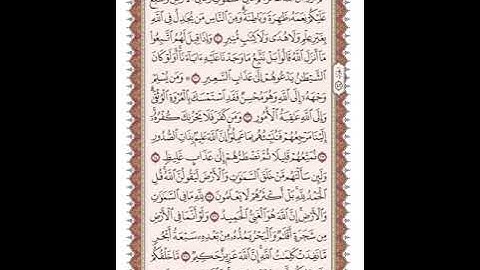 عَلَيْكُمْ نِعَمَهُۥ ظَٰهِرَةً وَبَاطِنَةً وَمِنَ ٱلنَّاسِ مَن يُجَٰدِلُ فِى ٱللَّهِ
بِغَيْرِ عِلْمٍ وَلَا هُدًى وَلَا كِتَٰبٍ مُّنِيرٍ ٢٠ وَإِذَا قِيلَ لَهُمُ ٱتَّبِعُوا۟
مَآ أَنزَلَ ٱللَّهُ قَالُوا۟ بَلْ نَتَّبِعُ مَا وَجَدْنَا عَلَيْهِ ءَابَآءَنَآ أَوَلَوْ كَانَ
ٱلشَّيْطَٰنُ يَدْعُوهُمْ إِلَىٰ عَذَابِ ٱلسَّعِيرِ ٢١ ۞ وَمَن يُسْلِمْ
وَجْهَهُۥٓ إِلَى ٱللَّهِ وَهُوَ مُحْسِنٌ فَقَدِ ٱسْتَمْسَكَ بِٱلْعُرْوَةِ ٱلْوُثْقَىٰ
وَإِلَى ٱللَّهِ عَٰقِبَةُ ٱلْأُمُورِ ٢٢ وَمَن كَفَرَ فَلَا يَحْزُنكَ كُفْرُهُۥٓ
إِلَيْنَا مَرْجِعُهُمْ فَنُنَبِّئُهُم بِمَا عَمِلُوٓا۟ إِنَّ ٱللَّهَ عَلِيمٌۢ بِذَاتِ ٱلصُّدُورِ
٢٣ نُمَتِّعُهُمْ قَلِيلًا ثُمَّ نَضْطَرُّهُمْ إِلَىٰ عَذَابٍ غَلِيظٍ ٢٤
وَلَئِن سَأَلْتَهُم مَّنْ خَلَقَ ٱلسَّمَٰوَٰتِ وَٱلْأَرْضَ لَيَقُولُنَّ ٱللَّهُ قُلِ
ٱلْحَمْدُ لِلَّهِ بَلْ أَكْثَرُهُمْ لَا يَعْلَمُونَ ٢٥ لِلَّهِ مَا فِى ٱلسَّمَٰوَٰتِ
وَٱلْأَرْضِ إِنَّ ٱللَّهَ هُوَ ٱلْغَنِىُّ ٱلْحَمِيدُ ٢٦ وَلَوْ أَنَّمَا فِى ٱلْأَرْضِ
مِن شَجَرَةٍ أَقْلَٰمٌ وَٱلْبَحْرُ يَمُدُّهُۥ مِنۢ بَعْدِهِۦ سَبْعَةُ أَبْحُرٍ
مَّا نَفِدَتْ كَلِمَٰتُ ٱللَّهِ إِنَّ ٱللَّهَ عَزِيزٌ حَكِيمٌ ٢٧ مَّا خَلْقُكُمْ